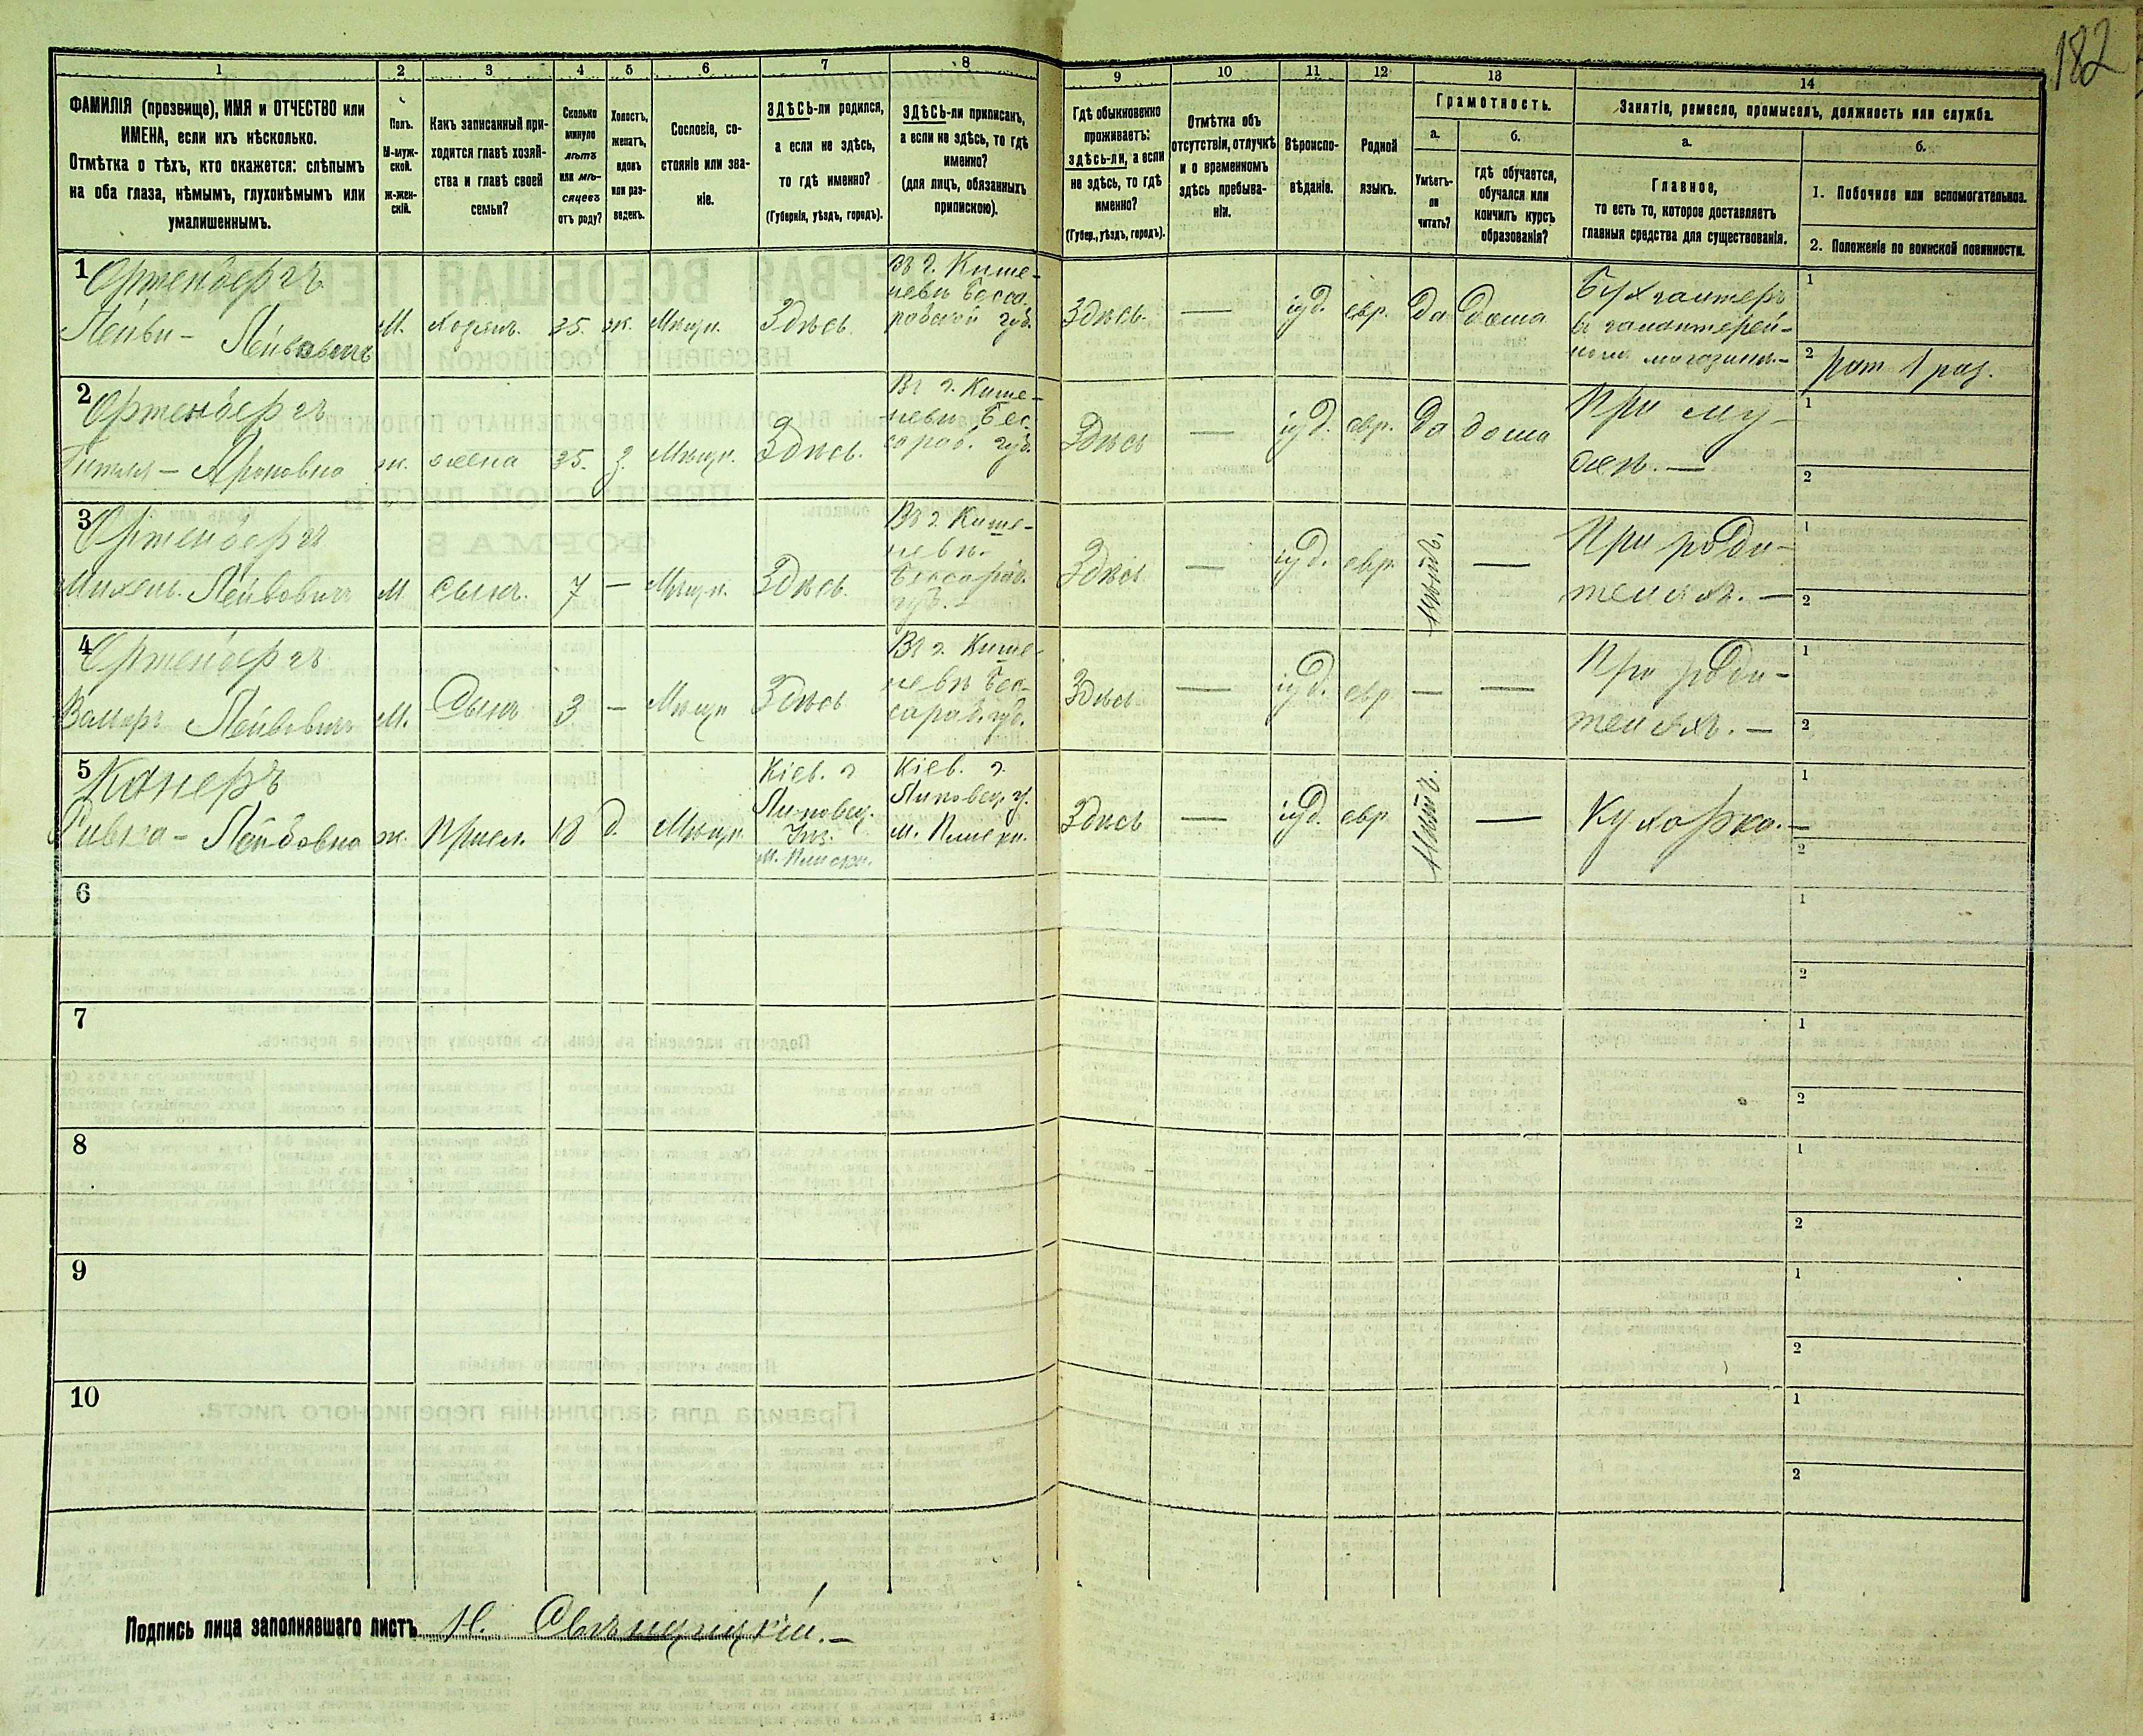 182
1 2 3 4 5 6 7 8 9 10 11 12 13 14
ФАМИЛІЯ (прозвище), ИМЯ и ОТЧЕСТВО или
ИМЕНА, если ихъ нѣсколько.
Отмѣтка о тѣхъ, кто окажется: слѣпымъ
на оба глаза, нѣмымъ, глухонѣмымъ или
умалишеннымъ.
Полъ.
М-муж-
ской.
ж-жен-
скій.
Какъ записанный при-
ходится главѣ хозяй-
ства и главѣ своей
семьи?
Сколько
минуло
лѣтъ
или мѣ-
сяцевъ
отъ роду?
Холостъ,
женатъ,
вдовъ
или раз-
веденъ.
Сословіе, со-
стояніе или зва-
ніе.
ЗДѢСЬ-ли родился,
а если не здѣсь,
то гдѣ именно?
(Губернія, уѣздъ, городъ).
ЗДѢСЬ-ли приписанъ,
а если не здѣсь, то гдѣ
именно?
(для лицъ, обязанныхъ
припискою).
Гдѣ обыкновенно
проживаетъ:
здѣсь-ли, а если
не здѣсь, то гдѣ
именно?
(Губер., уѣздъ, городъ).
Отмѣтка объ
отсутствіи, отлучкѣ
и о временномъ
здѣсь пребыва-
ніи.
Вѣроиспо-
вѣданіе.
Родной
языкъ.
Грамотность.
а.
Умѣетъ-
ли
читать?
б.
гдѣ обучается,
обучался или
кончилъ курсъ
образованія?
Занятіе, ремесло, промыселъ, должность или служба.
а.
Главное,
то есть то, которое доставляетъ
главныя средства для существованія.
б.
1. Побочное или вспомогательное.
2. Положеніе по воинской повинности.
1 Ортенбергъ
Лейви - Лейбовичъ М. хозяинъ. 35. ж. Мѣщ. Здѣсь.
Въ г. Кише-
невѣ Бесса-
рабской губ.
Здѣсь. — іуд. евр. да дома
Бухгалтеръ
въ галантерей-
номъ магазинѣ.-
1
2 рат 1 раз.
2 Ортенбергъ
Ароновна ж. жена 35. з. Мѣщ. Здѣсь.
Въ г. Кише-
невѣ Бес-
сараб. губ.
Здѣсь — іуд. евр. да дома
При му-
жѣ. —
1
2
3 Ортенбергъ
Михель. Лейбовичъ М. сынъ. 7 — Мѣщ. Здѣсь.
Въ г. Кише-
невѣ.
Бессараб.
губ. -
Здѣсь — іуд. евр. нѣтъ. —
При роди-
теляхъ. —
1
2
4 Ортенбергъ
Лейбовичъ М. Сынъ 3 — Мѣщ Здѣсь
Въ г. Кише-
невѣ Бес-
сараб. губ.
Здѣсь — іуд. евр — —
При роди-
теляхъ. —
1
2
5 Канеръ
Ривка - Лейбовна ж. присл. 18 д. Мѣщ.
Кіев. г
Липовец.
Киев. г.
Липовец. у.
Здѣсь — іуд. евр. нѣтъ. — Кухарка. —
1
2
6
1
2
7
1
2
8
1
2
9
1
2
10
1
2
Подпись лица заполнявшаго листъ Н.